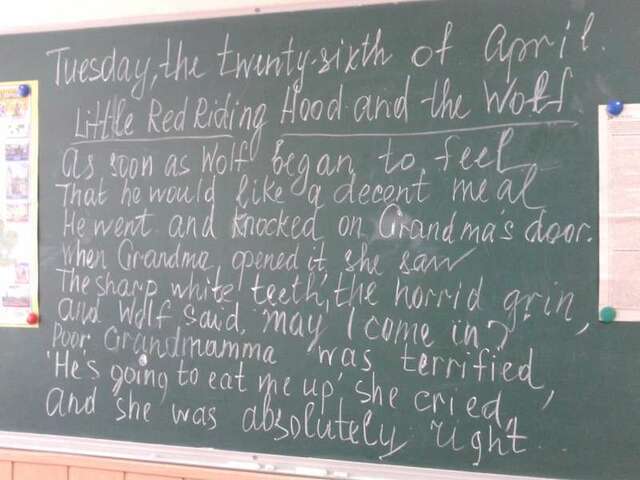 Tuesday, the twenty-sixth of April.
Little Red Riding Hood and the Wolf
As soon as Wolf began to feel
That he would like a decent meal
He went and knocked on Grandma's door.
When Grandma opened it, she saw
The sharp white teeth, the horrid grin,
And Wolf said, "may I come in?"
Poor Grandmamma was terrified,
'He's going to eat me up,' she cried,
And she was absolutely right.